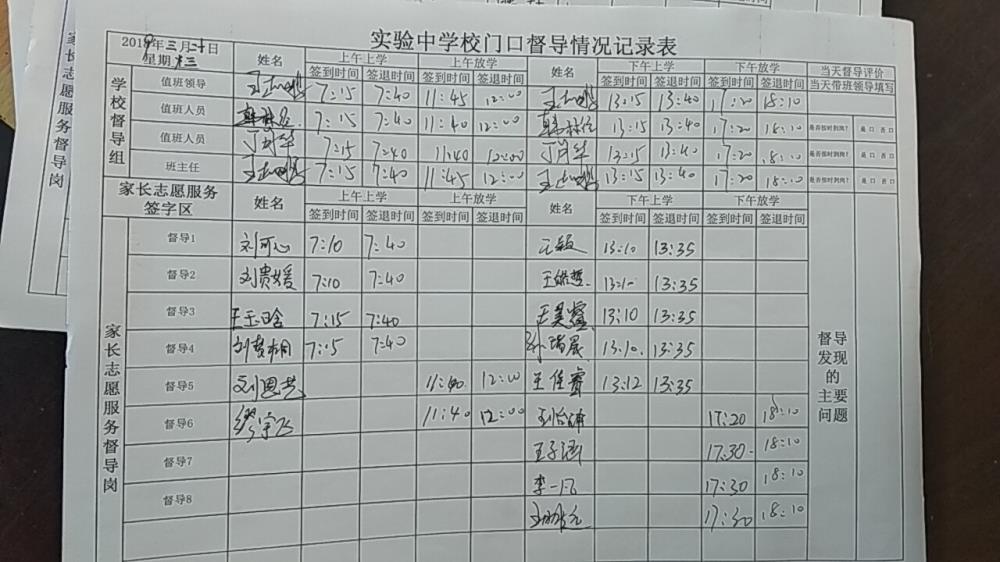 实验中学校门口督导情况记录表
2019年三月二十日
星期三 姓名 上午上学 上午放学 姓名 下午上学 下午放学 当天督导评价
签到时间 签退时间 签到时间 签退时间 签到时间 签退时间 签到时间 签退时间 当天带班领导填写
学校督导组
值班领导 7:15 7:40 11:45 12:00 13:15 13:40 17:20 18:10
值班人员 7:15 7:40 11:40 12:00 13:15 13:40 17:20 18:10 是否按时到岗? 是口 否口
值班人员 7:15 7:40 11:40 12:00 13:15 13:40 17:20 18:10 是否按时到岗? 是口 否口
班主任 7:15 7:40 11:45 12:00 13:15 13:40 17:20 18:10 是否按时到岗? 是口 否口
家长志愿服务 姓名 上午上学 上午放学 姓名 下午上学 下午放学
签字区 签到时间 签退时间 签到时间 签退时间 签到时间 签退时间 签到时间 签退时间
家长志愿服务督导岗
督导1 刘可心 7:10 7:40 王毅 13:10 13:35
督导2 刘贵媛 7:10 7:40 13:10 13:35
督导3 王玉晗 7:15 7:40 王昊睿 13:10 13:35
督导4 7:15 7:40 孙瑞晨 13:10 13:35
督导5 11:40 12:00 王佳睿 13:12 13:35
督导6 缪宇飞 11:40 12:00 17:20 18:10
督导7 王子涵 17:30 18:10
督导8 李一凡 17:30 18:10
17:30 18:10
督导
发现
的
主要
问题
家长志愿服务督导岗